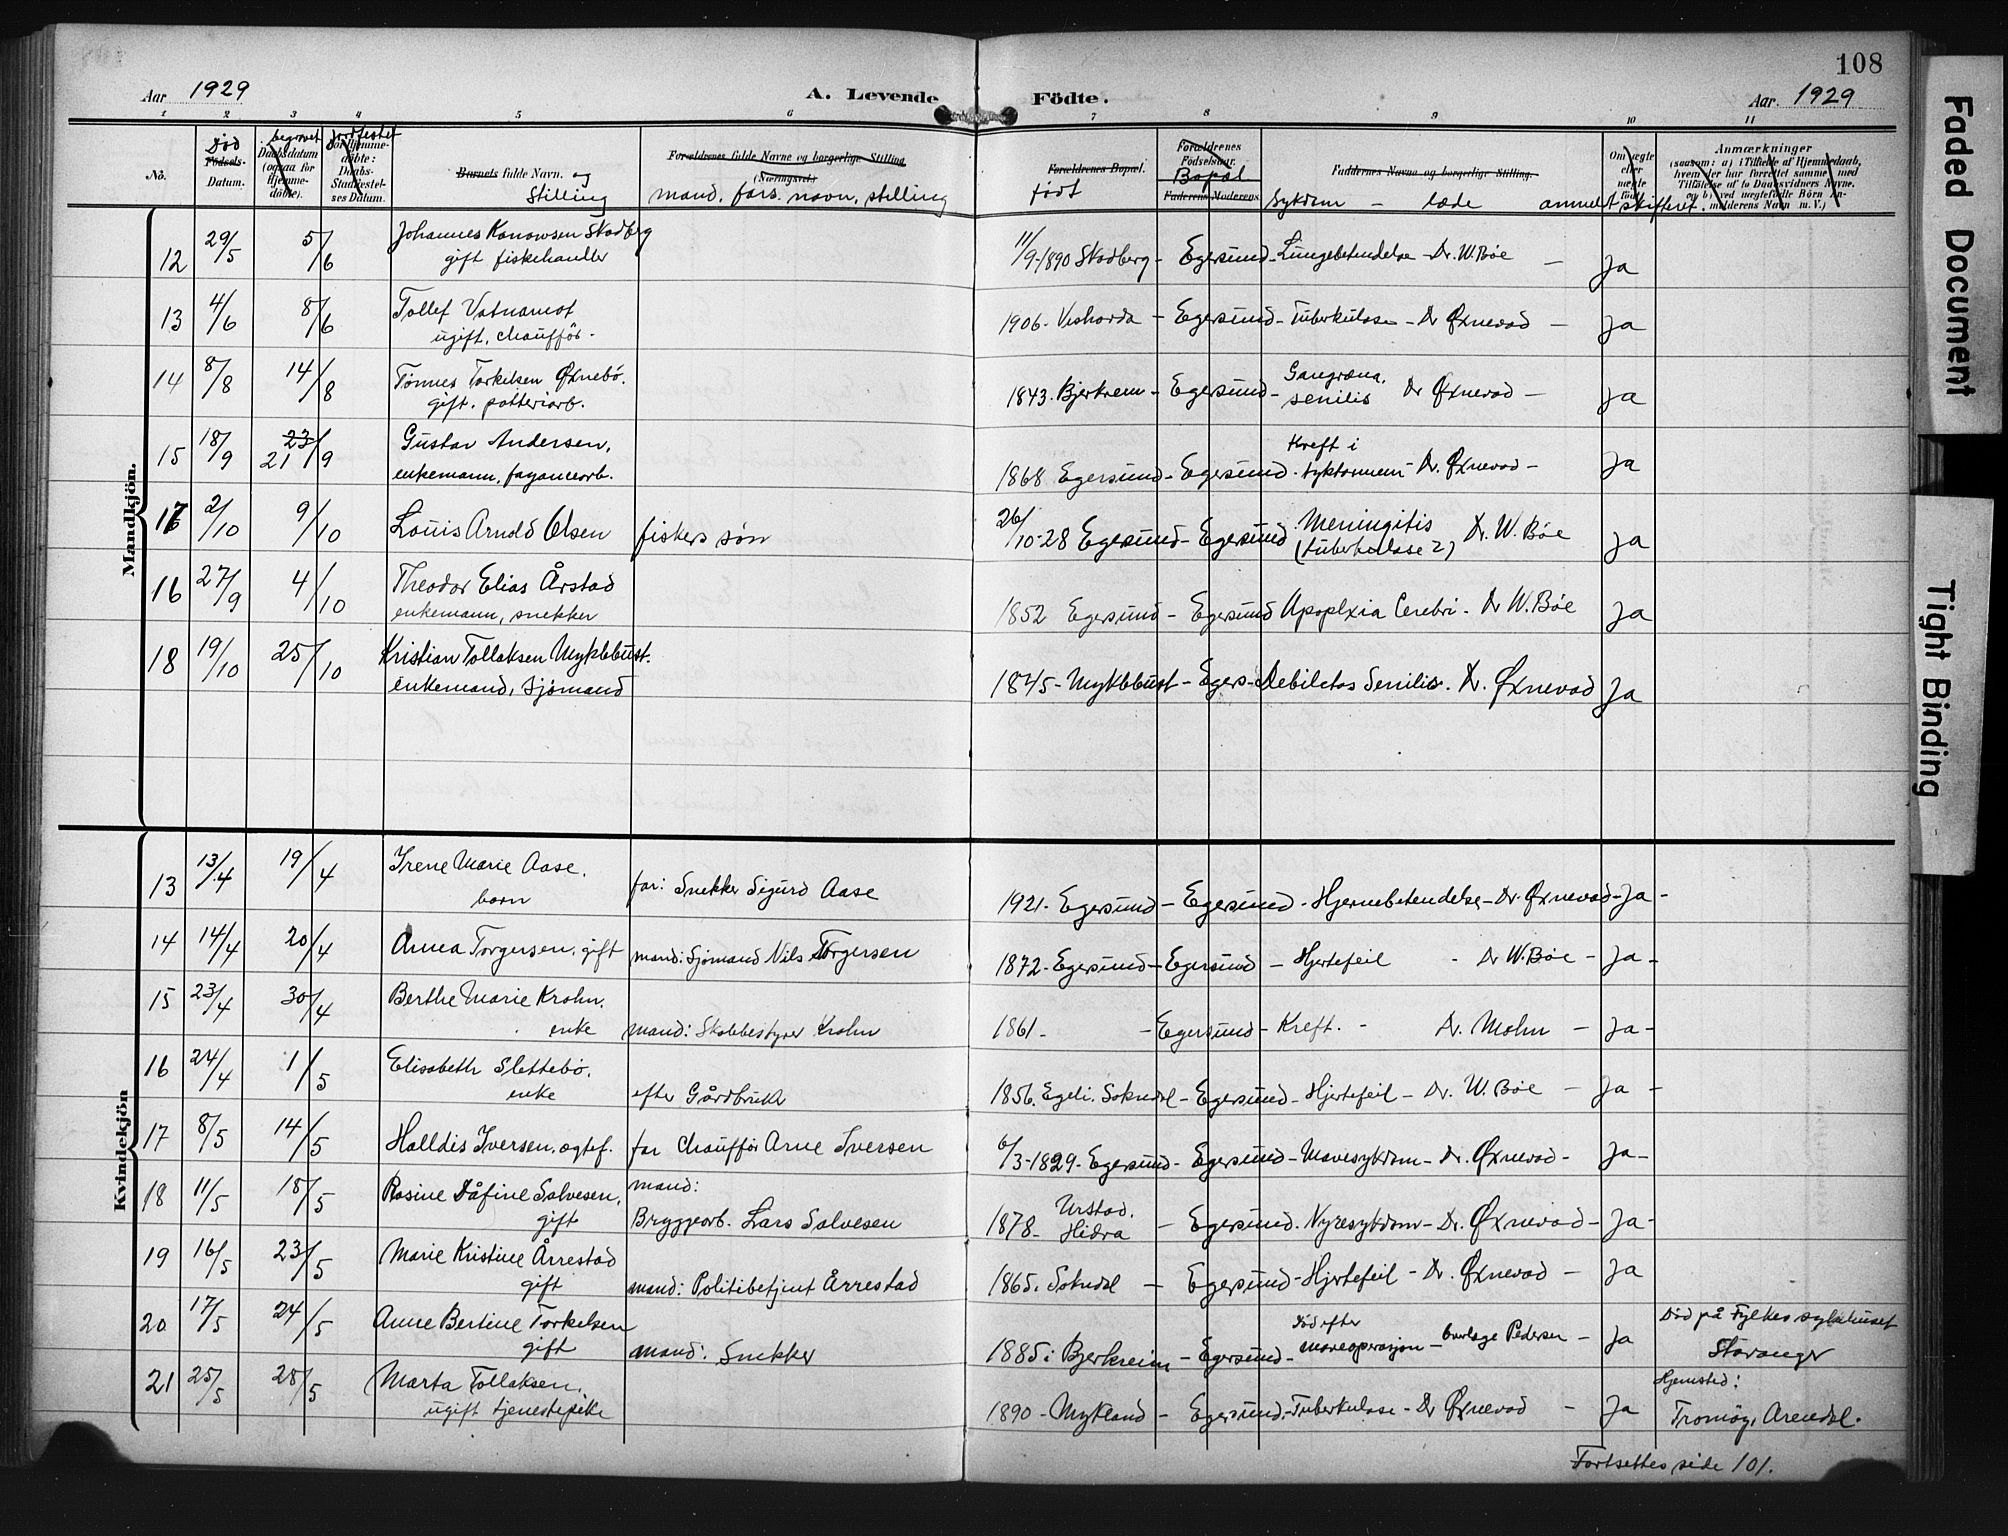 108
Aar 1929
A. Levende
Födte.
Aar. 1929
1 2 3 4 5 6 7 8 9 10 11
No.
Död
Födsels-
Datum.
begravet
Daabsdatum
(ogsaa for
Hjemme-
döbte).
Jordfestet
for Hjemme-
döbte:
Daabs-
Stadfæstel-
ses Datum.
Barnets fulde Navn. og
Stilling
Forældrenes fulde Navne og borgerlige Stilling
(Næringsvei)
mand, fars. navn, stilling
Forældrenes Bopæl.
födt
Forældrenes
Födselsaar.
Bopæl
Faderens Moderens
Faddernes Navne og borgerlige Stilling.
Sykdom - læde anmeldt skifteret.
Om ægte
eller
uægte
födt
Anmærkninger
(saasom: a) i Tilfælde af Hjemmedaab,
hvem der har forrettet samme med
Tilføielse af to Daabsvidners Navne.
og b) ved uægtefødte Börn An-
melderens Navn m. V.)
Mandkjön.
12 29/5 5/6 Johannes Kanowsen Skadberg
gift fiskehandler
11/9-1890 Skadberg - Egersund - Lungebetendelse - Dr. W. Böe - Ja
13 4/6 8/6 Tollef Vatnamot
ugift, chaufför.
1906 - Veshovda - Egersund - Tuberkulose - Dr Øxnevad - Ja
14 8/8 14/8 Tönnes Torkelsen Øxnebö.
gift. potteriarb.
1843. Bjerkrem - Egersund - Gangræna. senilis Dr Øxnevad - Ja
15 18/9 23 21/9 Gustav Andersen,
enkemann, fayancearb.
1868 Egersund - Egersund. Kreft i tyktarmen - Dr. Øxnevad - Ja
17 2/10 9/10 Louis Arnold Olsen fiskers sön
26/10-28 Egersund - Egersund. Meningitis (tuberkulose?) Dr. W. Böe Ja
16 27/9 4/10 Theodor Elias Årstad
enkemann, snekker
1852 Egersund - Egersund Apoplxia Cerebri - Dr W. Böe Ja
18 19/10 25/10 Kristian Tollaksen Myklebust.
enkemand, sjömand
1845 - Myklebust - Egers - Debiletas Senilis. Dr. Øxnevad Ja
Kvindekjön
13 13/4 19/4 Irene Marie Aase,
barn
far: Snekker Sigurd Aase
1921. Egersund - Egersund - Hjernebetendelse - Dr. Øxnevad - Ja -
14 14/4 20/4 Anna Torgersen, gift mand: Sjömand Nils Torgersen
1872 - Egersund - Egersund - Hjertefeil - Dr W. Böe - Ja -
15 23/4 30/4 Berthe Marie Krohn,
enke mand: Skolebestyrer Krohn
1861 - - Egersund - Kreft. - Dr. Mohn - Ja -
16 24/4 1/5 Elisabeth Slettebö,
enke efter Gårdbruker
1856. Egeli. Sokndal - Egersund - Hjertefeil - Dr. W. Böe - Ja -
17 8/5 14/5 Halldis Iversen, ægtef. far Chaufför Arne Iversen
6/3-1829 - Egersund - Egersund - Mavesykdom - Dr. Øxnevad - Ja -
18 11/5 18/5 Rosine Dåfine Salvesen,
gift
mand:
Bryggearb. Lars Salvesen
1878 - Urstad, Hidra - Egersund. Nyresykdom - Dr. Øxnevad - Ja -
19 16/5 23/5 Marie Kristine Årrestad
gift mand: Politibetjent Årrestad
1865. Sokndal - Egersund - Hjertefeil - Dr. Øxnevad - Ja
20 17/5 24/5 Anne Bertine Torkelsen
gift mand: Snekker
1885 i Bjerkreim - Egersund - Död efter maveoperasjon - Overlæge Pedersen - Ja Död på Fylkessykehuset
Stavanger
21 25/5 28/5 Marta Tollaksen,
ugift tjenestepike
1890 - Mykland - Egersund. - Tuberkulose - Dr Øxnevad - Ja Hjemsted:
Tromöy, Arendal.
Fortsettes side 101.
Faded Document
Tight Binding